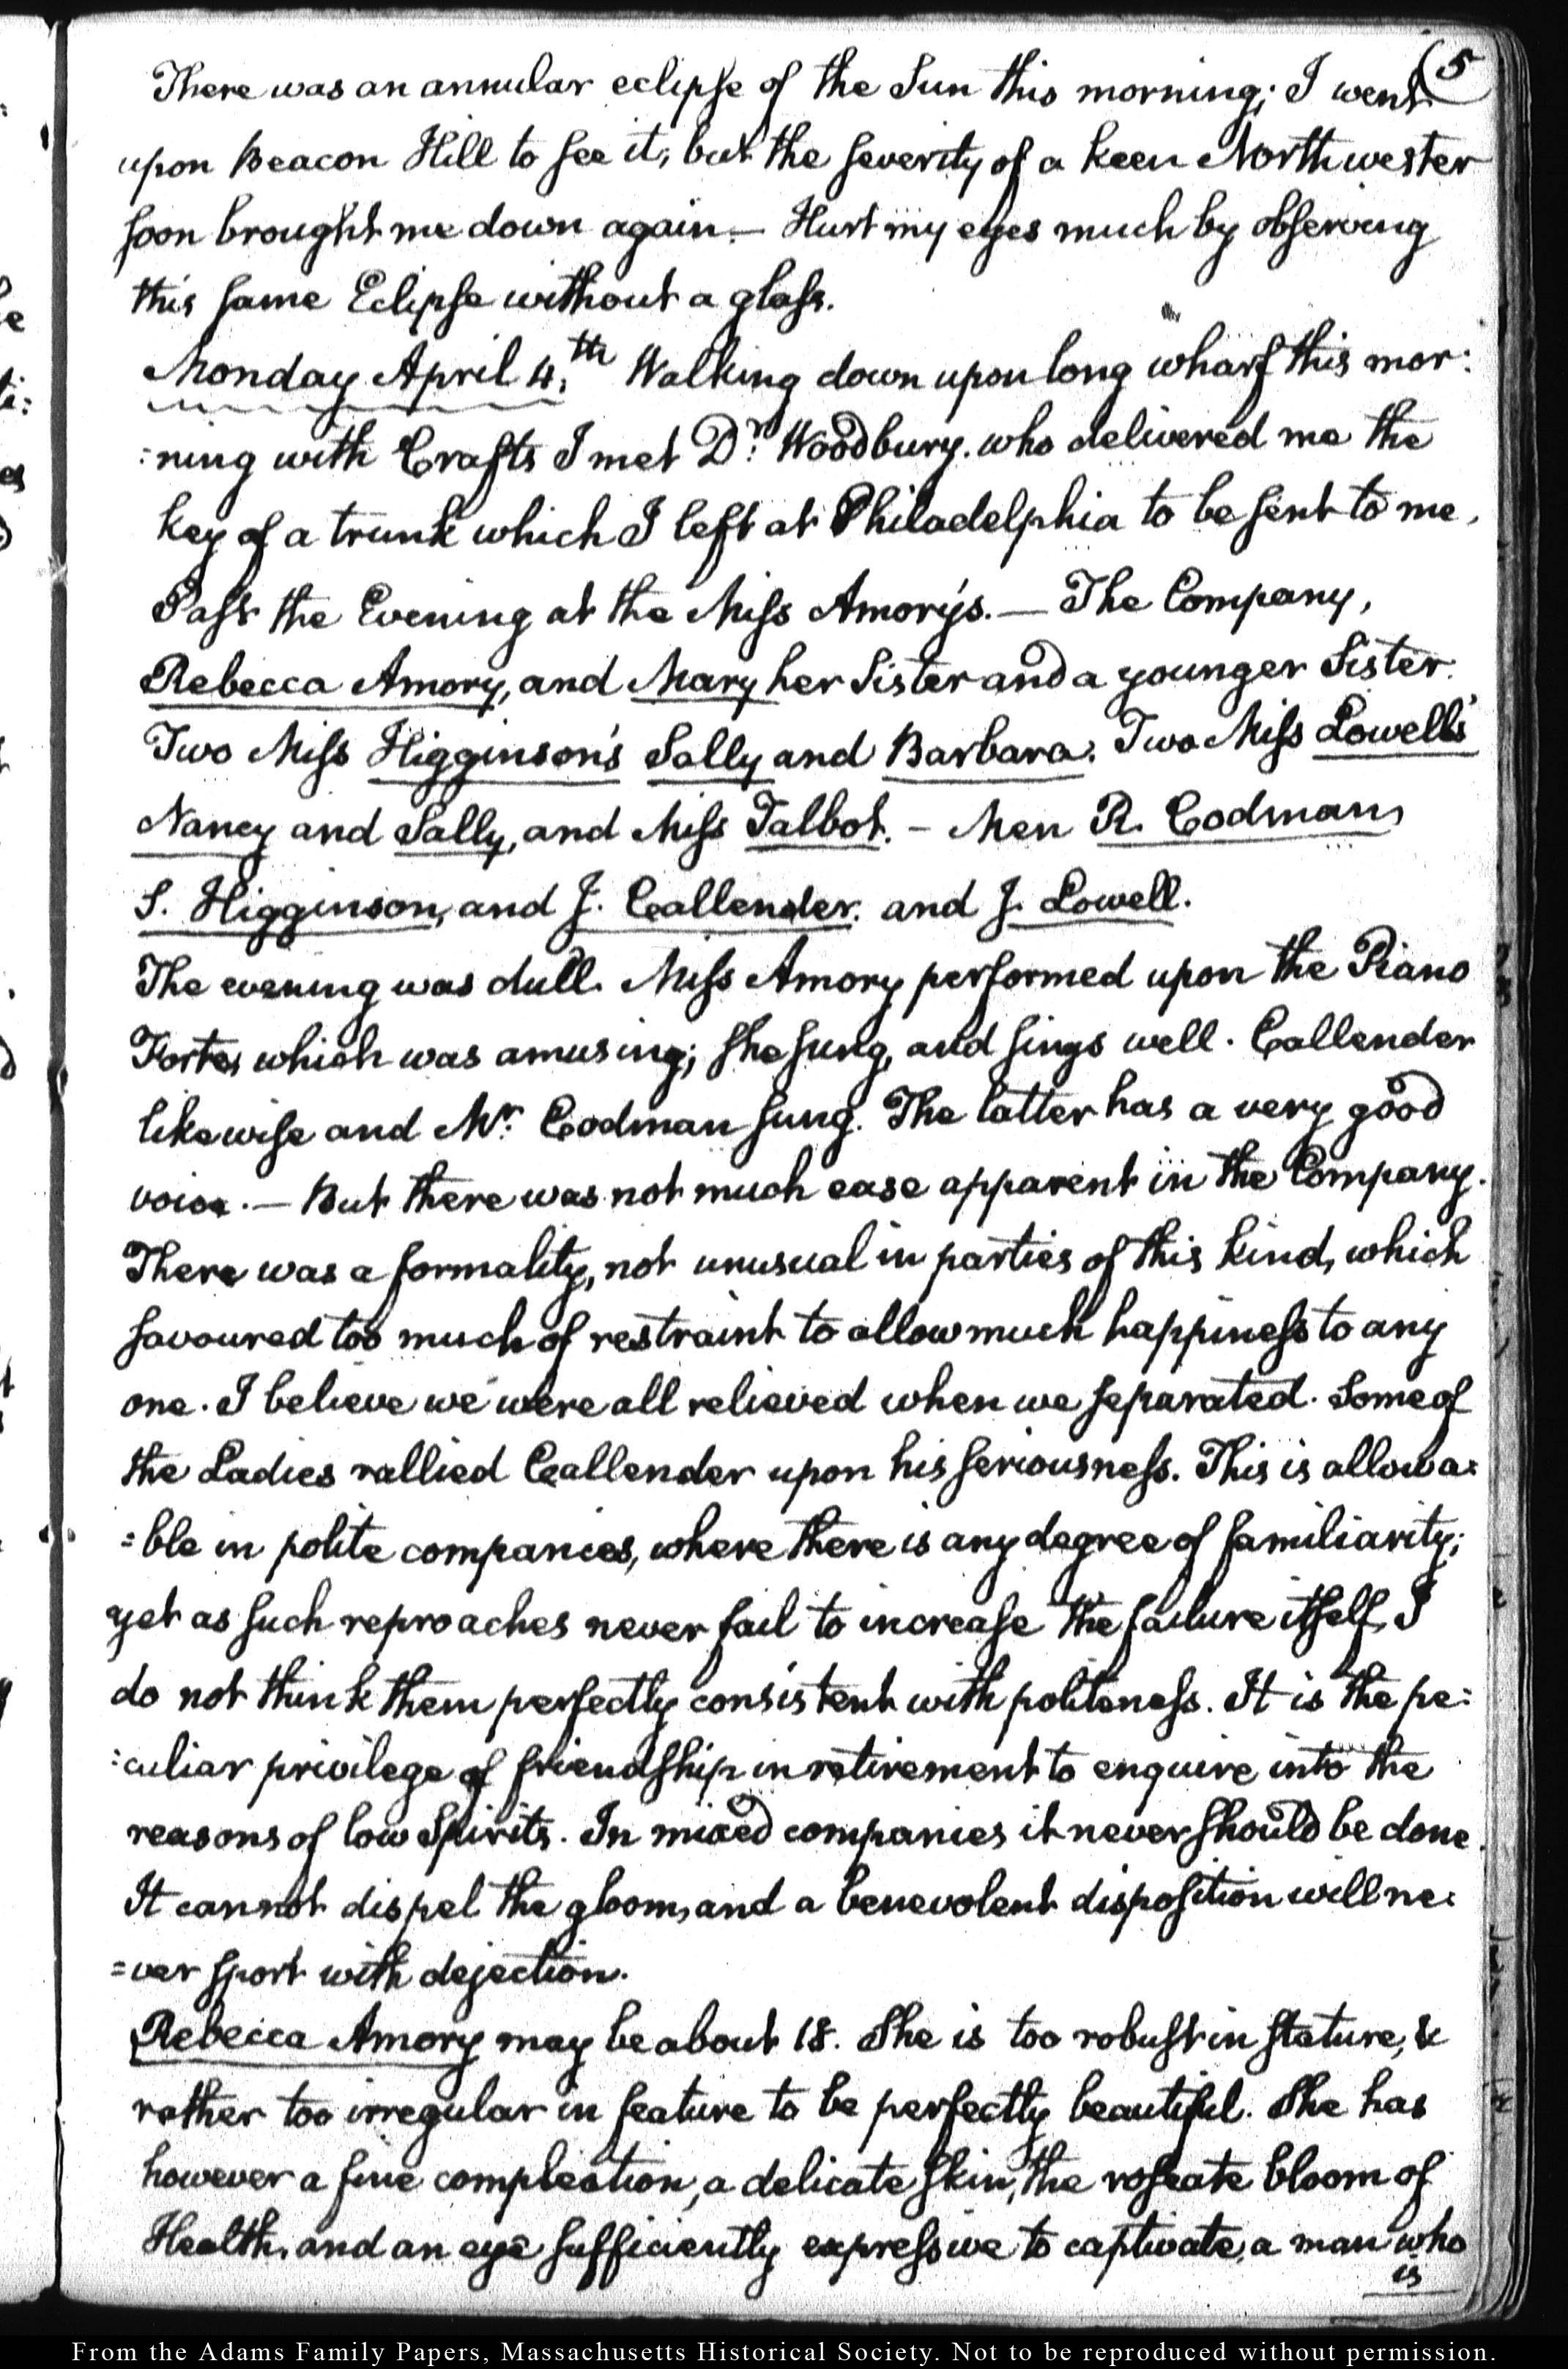 (5
There was an annular eclipse of the Sun this morning; I went
upon Beacon Hill to see it, but the severity of a keen Northwester
soon brought me down again.— Hurt my eyes much by observing
this same Eclipse without a glass.
Monday April 4.th Walking down upon long wharf this mor:
:ning with Crafts I met Dr. Woodbury. who delivered me the
key of a trunk which I left at Philadelphia to be sent to me,
Past the Evening at the Miss Amory's.— The Company,
Rebecca Amory, and Mary her Sister and a younger Sister.
Two Miss Higginson's Sally and Barbara. Two Miss Lowells'
Nancy and Sally, and Miss Talbot. – Men R. Codman,
S. Higginson, and J. Callender. and J. Lowell.
The evening was dull. Miss Amory performed upon the Piano
Forte, which was amusing; she sung, and sings well. Callender
likewise and Mr. Codman sung. The latter has a very good
voice.— But there was not much ease apparent in the Company.
There was a formality, not unusual in parties of this kind, which
savoured too much of restraint to allow much happiness to any
one. I believe we were all relieved when we separated. Some of
the Ladies rallied Callender upon his seriousness. This is allowa=
=ble in polite companies, where there is any degree of familiarity;
yet as such reproaches never fail to increase the failure itself, I
do not think them perfectly consistent with politeness. It is the pe:
:culiar privilege of friendship in retirement to enquire into the
reasons of low Spirits. In mixed companies it never should be done.
It cannot dispel the gloom, and a benevolent disposition will ne:
=ver sport with dejection.
Rebecca Amory may be about 18. She is too robust in stature, &
rather too irregular in feature to be perfectly beautiful. She has
however a fine complection, a delicate skin, the roseate bloom of
Health, and an eye sufficiently expressive to captivate, a man who
is
From the Adams Family Papers, Massachusetts Historical Society. Not to be reproduced without permission.